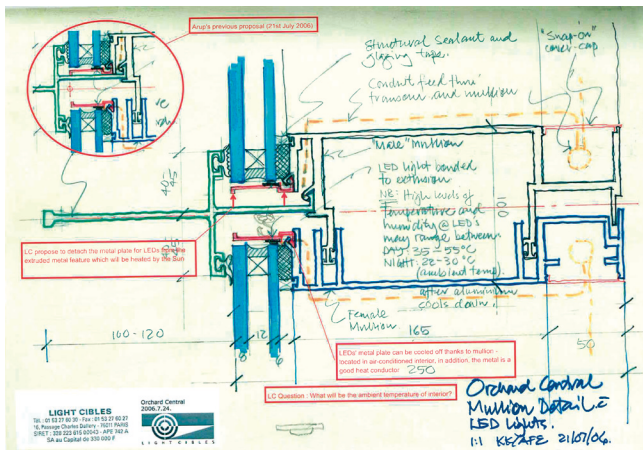 Arup's previous proposal (21st July 2006)
Structural sealant and
glazing tape.
"Snap-on"
cover-cap
Conduit feed thru'
transom and mullion
"Male" Mullion
LED light bonded
to extrusion
NB: High levels of
temperature and
humidity @ LED's
may range between
DAY: 35 - 55°C
NIGHT: 28-30°C
(ambient temp).
after aluminium
cools down.
100
LC propose to detach the metal plate for LEDs from the
extruded metal feature which will be heated by the Sun
Female
Mullion.
100-120
12
165
8
6
50
LEDs' metal plate can be cooled off thanks to mullion -
located in air-conditioned interior, in addition, the metal is a
good heat conductor
250
LC Question : What will be the ambient temperature of interior?
LIGHT CIBLES
Tél. : 01 53 27 60 30 - Fax : 01 53 27 60 27
16, Passage Charles Dallery - 75011 PARIS
SIRET : 328 223 815 00043 - APE 742 A
SA au Capital de 330 000 F
Orchard Central
2006.7.24.
LIGHT CIBLES
Orchard Central
Mullion Detail c
LED lights.
1:1 KK/AFE 21/07/06.